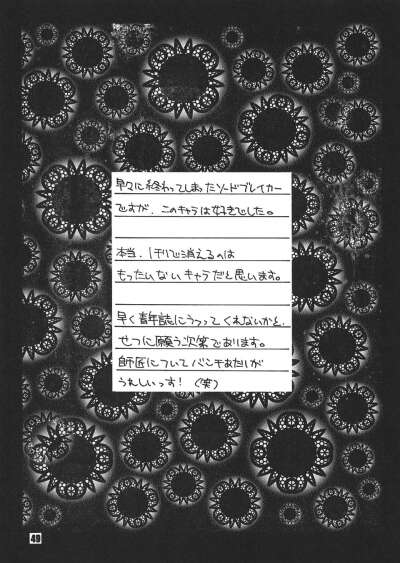 早々に終わってしまったソードブレイカー
ですが、このキャラは好きでした。
本当、1刊で消えるのは
もったいないキャラだと思います。
早く青年誌にうつってくれないかと、
せつに願う次第であります。
師匠について バンチあたりが
うれしいっす! (笑)
49